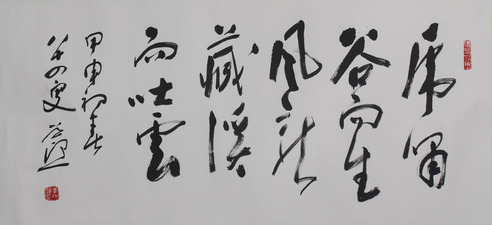 虎嘯
谷而生
風龍
藏溪
而吐雲
甲申初春
八十四叟